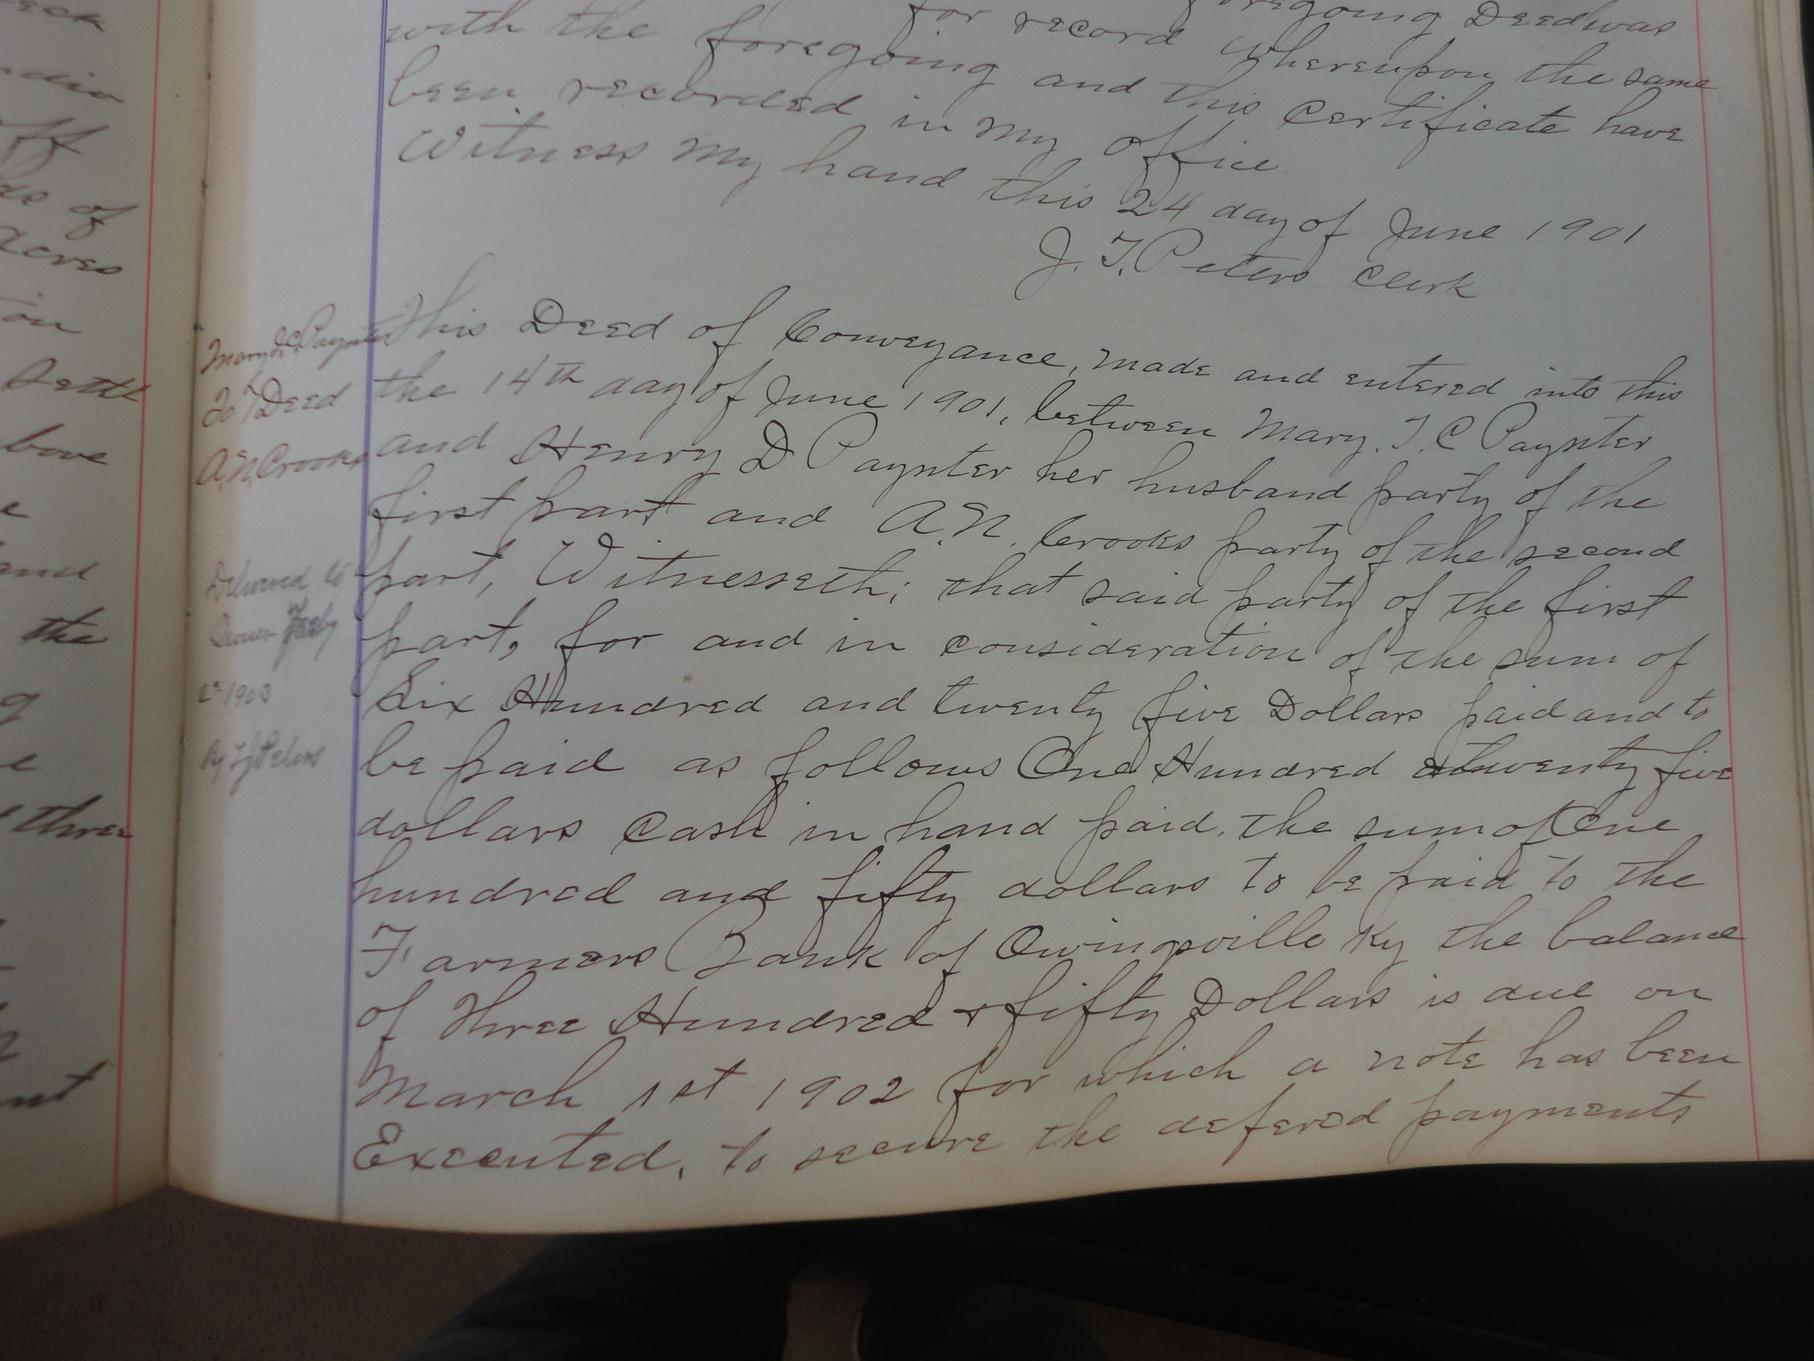 for record foregoing Deed was
with the foregoing and this Certificate have
whereupon the same
been recorded in my office
Witness my hand this 24 day of June 1901
J. T. Peters Clerk
Mary J C Paynter
To / Deed
A. N. Crooks
Delivered to
Owner Feby
2nd 1903
By T J Peters
This Deed of Conveyance, made and entered into this
the 14th day of June 1901, between Mary. J. C Paynter
and Henry D Paynter her husband party of the
first part and A. N. Crooks party of the second
part, Witnesseth; that said party of the first
part, for and in consideration of the sum of
Six Hundred and twenty five Dollars paid and to
be paid as follows One Hundred & twenty five
dollars Cash in hand paid, the sum of One
hundred and fifty dollars to be paid to the
Farmers Bank of Owingsville Ky the balance
of Three Hundred & fifty Dollars is due on
March 1st 1902 for which a note has been
Executed, to secure the defered payments
eck
ff
of
acres
on
bove
e
and
the
g
e
three